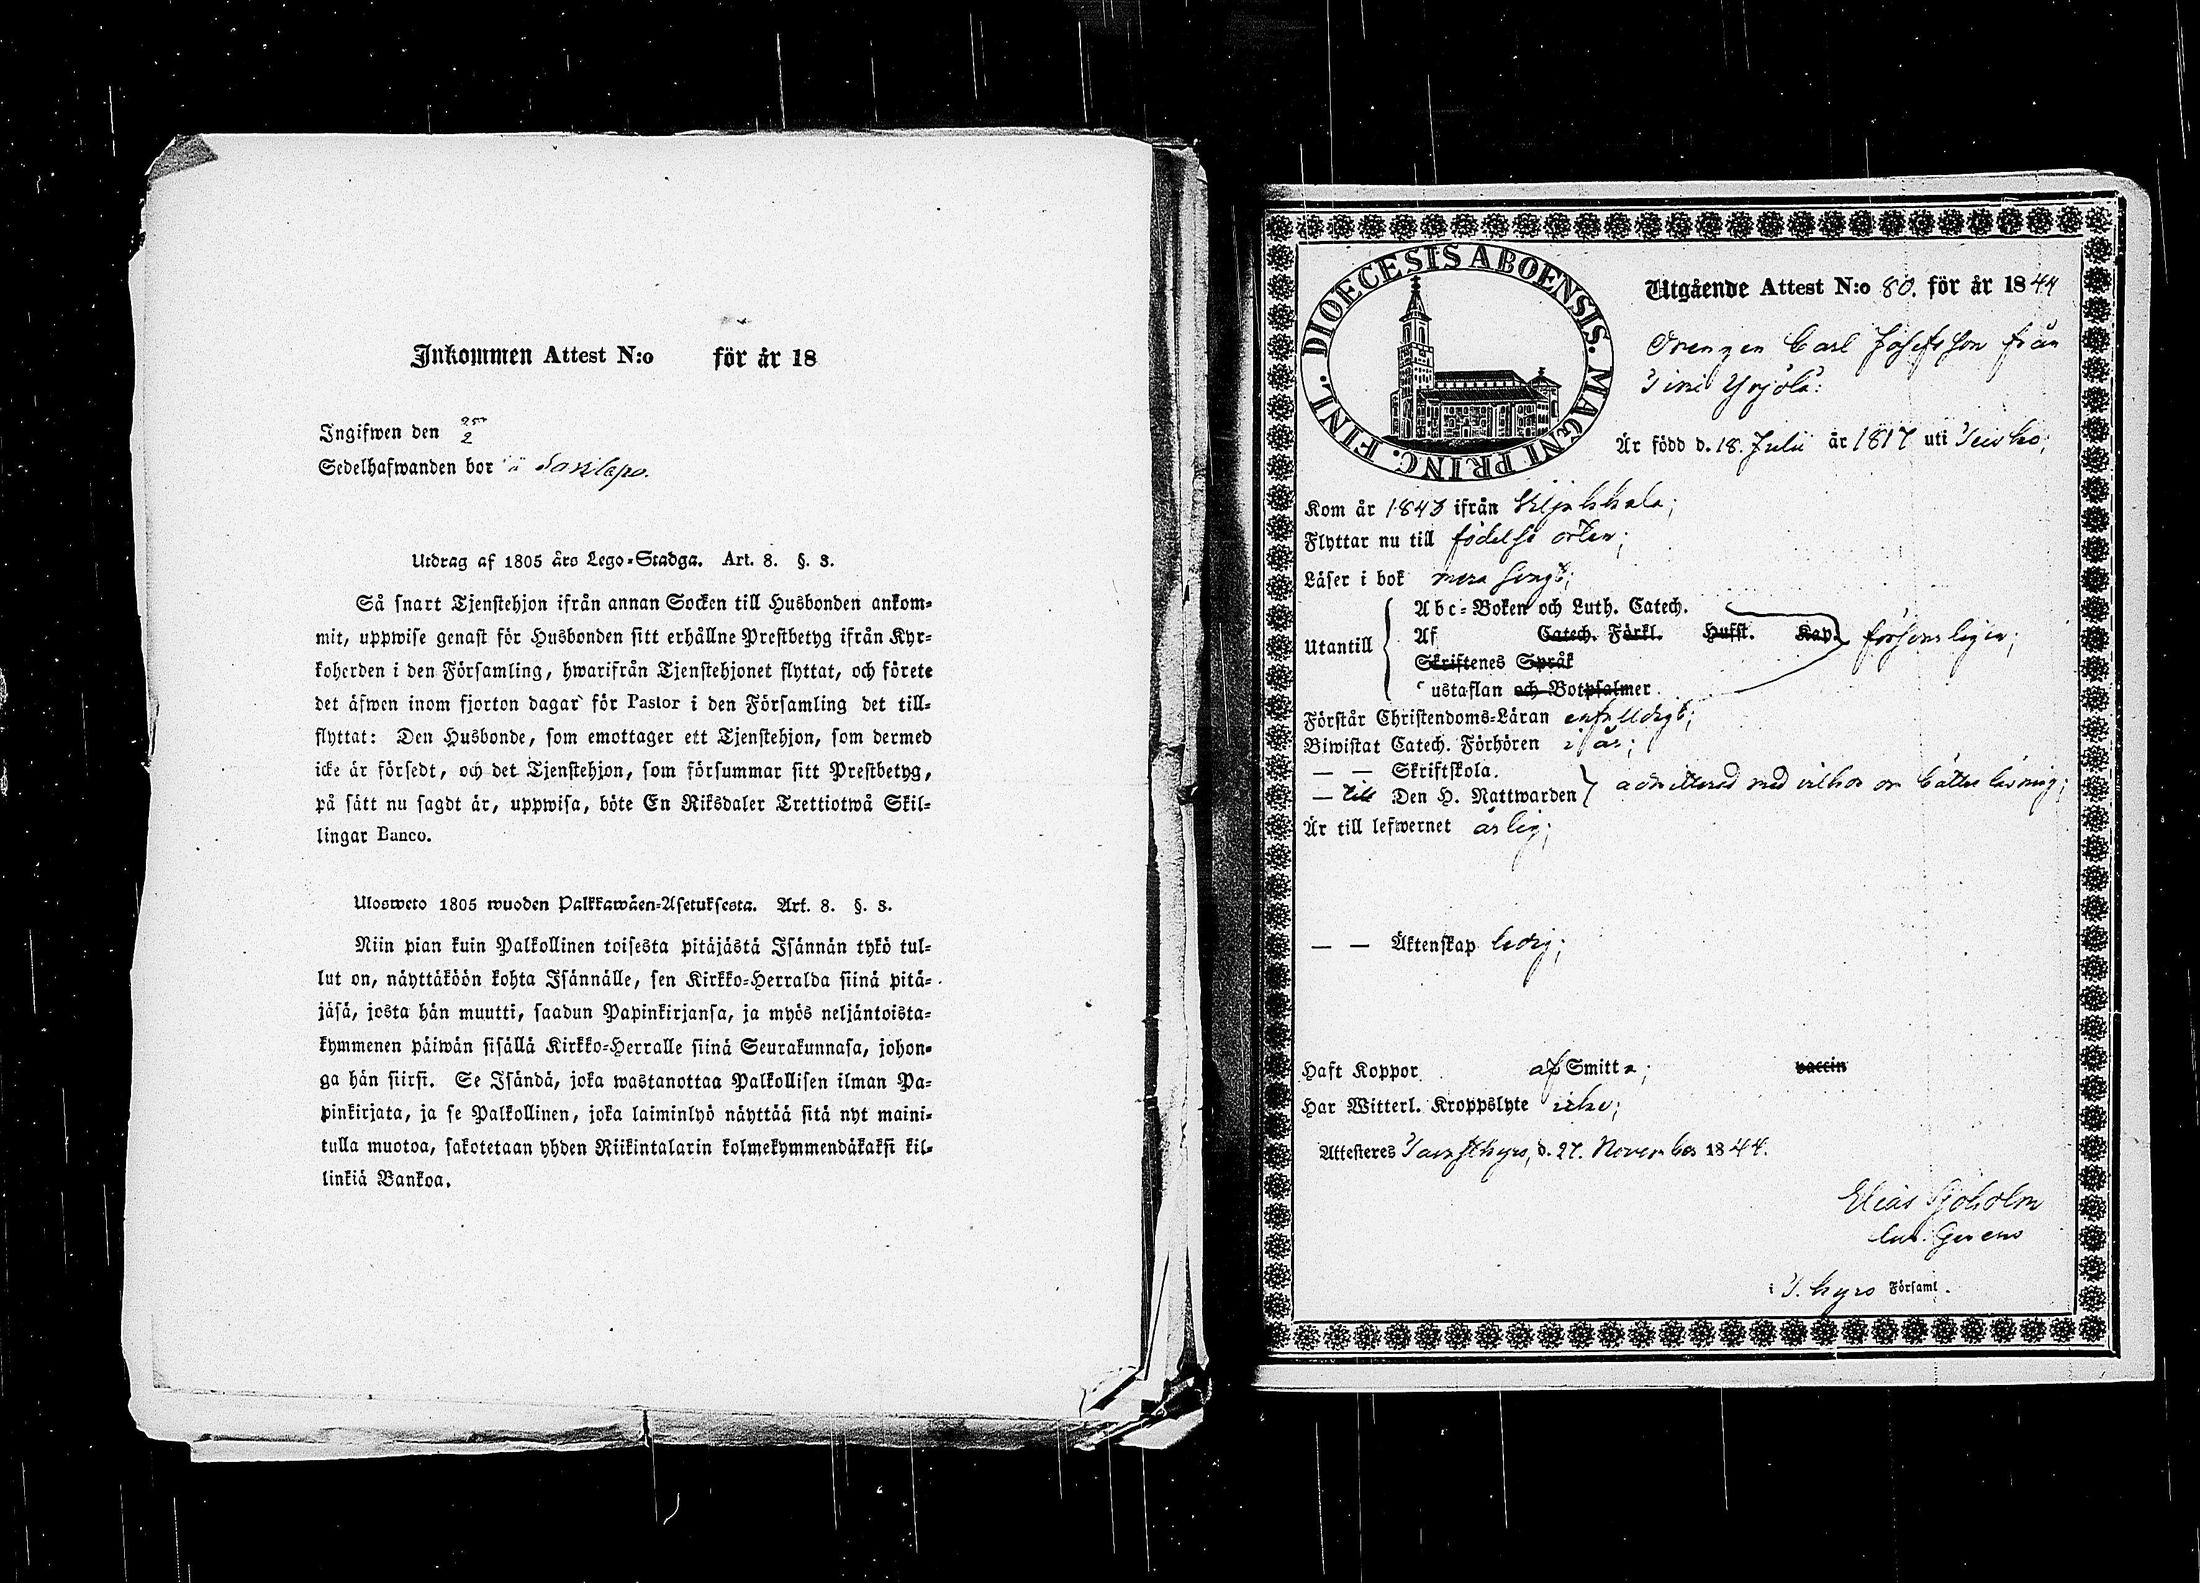 Inkommen Attest N:o för år 18
Ingifwen den 25/2
Sedelhafwanden bor
Utdrag af 1805 års Lego-Stadga. Art. 8. §. 3.
Så snart Tjenstehjon ifrån annan Socken till Husbonden ankom-
mit, uppwise genast för Husbonden sitt erhållne Prestbetyg ifrån Kyr-
koherden i den Församling, hwarifrån Tjenstehjonet flyttat, och förete
det äfwen inom fjorton dagar för Pastor i den Församling det till-
flyttat: Den Husbonde, som emottager ett Tjenstehjon, som dermed
icke är försedt, och det Tjenstehjon, som försummar sitt Prestbetyg,
på sätt nu sagdt är, uppwisa, böte En Riksdaler Trettiotwå Skil-
lingar Banco.
Ulosweto 1805 wuoden Palkkawäen-Asetuksesta. Art. 8. §. 3.
Niin pian kuin Palkollinen toisesta pitäjästä Isännän tykö tul-
lut on, näyttäköön kohta Isännälle, sen Kirkko-Herralda siinä pitä-
jäsä, josta hän muutti, saadun Papinkirjansa, ja myös neljäntoista-
kymmenen päiwän sisällä Kirkko-Herralle siinä Seurakunnasa, johon-
ga hän siirsi. Se Isändä, joka wastanottaa Palkollisen ilman Pa-
pinkirjata, ja se Palkollinen, joka laiminlyö näyttää sitä nyt maini-
tulla muotoa, sakotetaan yhden Riikintalarin kolmekymmendäkaksi kil-
linkiä Bankoa.
DIOECESIS ABOENSIS. MAGNI PRINC. FINL.
Utgående Attest N:o 80. för år 1844
Drengen Carl Josefsson från
Yrjölä:
Är född d. 18. Julii år 1817 uti
Kom år 1843 ifrån
Flyttar nu till födelse orten;
Läser i bok mera svagt;
Utantill
Abc-Boken och Luth. Catech.
Af Catech. Förkl. Husst. Kap. försvarligen;
Skriftenes Språk
ustaflan och Botpsalmer
Förstår Christendoms-Läran enfaldigt;
Biwistat Catech. Förhören i år;
— — Skriftskola.
— till Den H. Nattwarden admitterad med vilkor om bättre läsning;
Är till lefwernet ärlig;
— — Äktenskap ledig;
Haft Koppor af Smitta; vaccin
Har Witterl. Kroppslyte icke;
Attesteres Tavastkyro, d. 27. November 1844.
Elias
i T. kyro Församl.